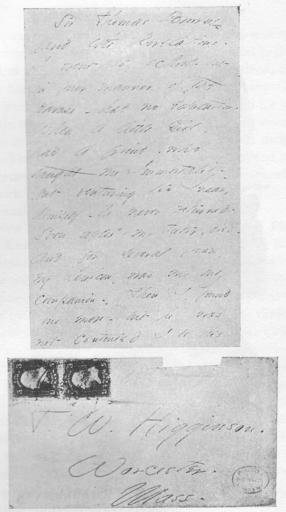 Sir Thomas Browne -
and the Revelations.
I went to school - but
in your manner of the
phrase - had no education.
When a little Girl,
I had a friend, who
taught me Immortality -
but venturing too near,
himself - he never returned -
Soon after, my Tutor, died -
and for several years,
my Lexicon - was my only
companion - Then I found
one more - but he was
not contented I be his
T. W. Higginson.
Worcester.
Mass.